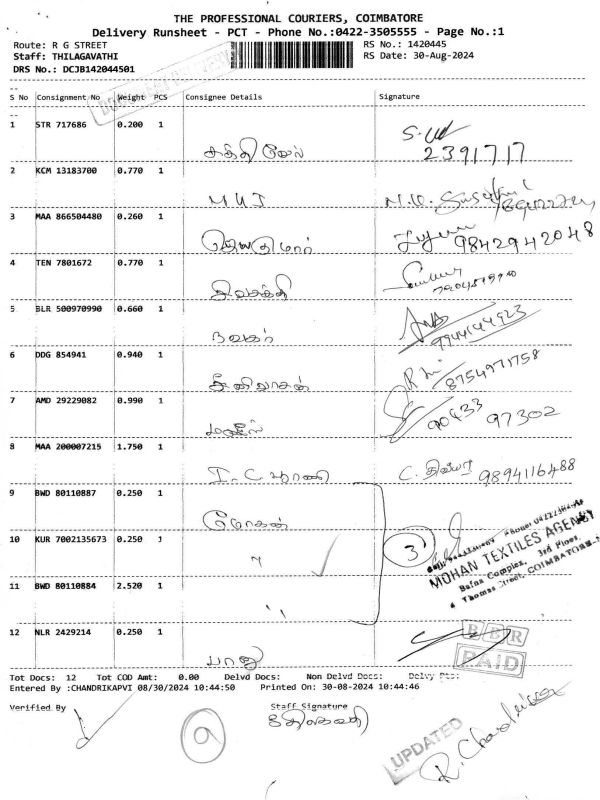 THE PROFESSIONAL COURIERS, COIMBATORE
Delivery Runsheet - PCT - Phone No.:0422-3505555 - Page No.:1
Route: R G STREET RS No.: 1420445
Staff: THILAGAVATHI RS Date: 30-Aug-2024
DRS No.: DCJB142044501
S No Consignment No Weight PCS Consignee Details Signature
1 STR 717686 0.200 1
சக்திவேல் 2391717
2 KCM 13183700 0.770 1
M U J
3 MAA 866504480 0.260 1
9842942048
4 TEN 7801672 0.770 1
சிவசக்தி
5 BLR 500970990 0.660 1
9944144923
6 DDG 854941 0.940 1
சீனிவாசன் 8754971758
7 AMD 29229082 0.990 1
90433 97302
8 MAA 200007215 1.750 1
9894116488
9 BWD 80110887 0.250 1
மோகன்
10 KUR 7002135673 0.250 1
" 3
MOHAN TEXTILES AGENCY
Bafna Complex, 3rd Floor,
Thomas Street, COIMBATORE
11 BWD 80110884 2.520 1
"
12 NLR 2429214 0.250 1
பாலு
BBR
PAID
Tot Docs: 12 Tot COD Amt: 0.00 Delvd Docs: Non Delvd Docs: Delvy Pts:
Entered By :CHANDRIKAPVI 08/30/2024 10:44:50 Printed On: 30-08-2024 10:44:46
Verified By Staff Signature
9
UPDATED